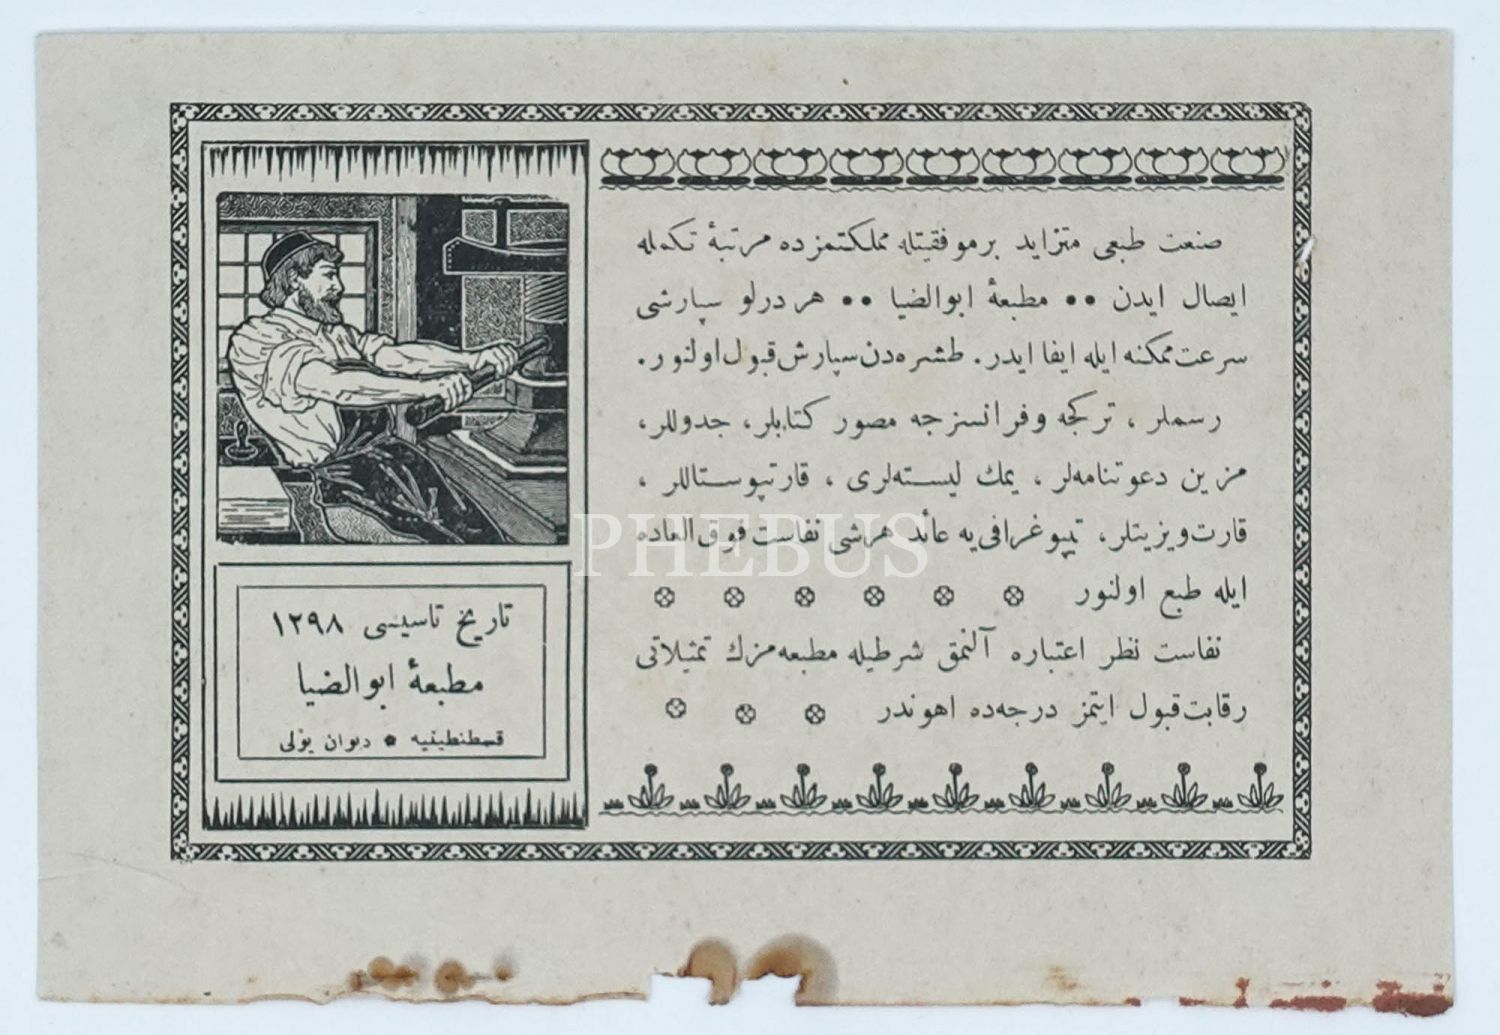 صنعت طبعی متزاید بر موفقیتله مملکتمزده مرتبهٔ تکمله
ایصال ایدن •• مطبعهٔ ابوالضیا •• هر درلو سپارشی
سرعت ممکنه ایله ایفا ایدر. طشره‌دن سپارش قبول اولنور.
رسملر ، ترکجه و فرانسزجه مصور کتابلر، جدوللر،
مزین دعوتنامه‌لر ، یمك لیسته‌لری ، قارتپوستاللر ،
قارت ویزیتلر، تیپوغرافی‌یه عائد هرشی نفاست فوق العاده
ایله طبع اولنور
نفاست نظر اعتباره آلنمق شرطیله مطبعه‌مزك تمثیلاتی
رقابت قبول ایتمز درجه‌ده اهوندر
تاریخ تاسیسی ۱۲۹۸
مطبعهٔ ابوالضیا
قسطنطینیه • دیوان یولی
PHEBUS